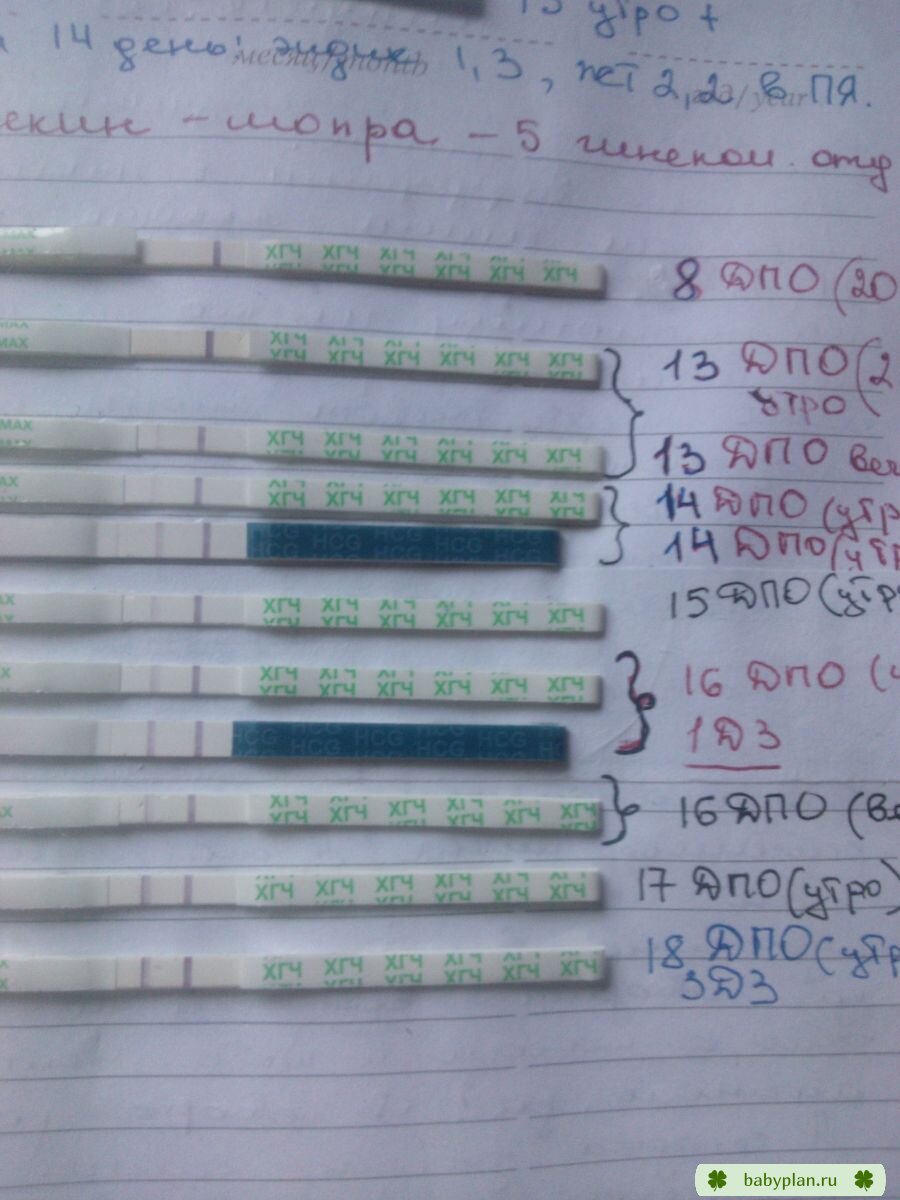 15 утро +
14 день: эндик 1,3, жт 2,2 в ПЯ.
месяц/month
/year
- шопра - 5 гинекол. отд
MAX
ХГЧ ХГЧ ХГЧ ХГЧ ХГЧ ХГЧ
8 ДПО (20
MAX
ХГЧ ХГЧ ХГЧ ХГЧ ХГЧ ХГЧ
13 ДПО (2
утро (
MAX
ХГЧ ХГЧ ХГЧ ХГЧ ХГЧ ХГЧ
13 ДПО веч
ХГЧ ХГЧ ХГЧ ХГЧ ХГЧ ХГЧ
14 ДПО (утр
HCG HCG HCG HCG HCG
14 ДПО (утр
ХГЧ ХГЧ ХГЧ ХГЧ ХГЧ ХГЧ
15 ДПО (утр
ХГЧ ХГЧ ХГЧ ХГЧ ХГЧ ХГЧ
16 ДПО (у
HCG HCG HCG HCG HCG
1 ДЗ
ХГЧ ХГЧ ХГЧ ХГЧ ХГЧ ХГЧ
16 ДПО (ве
ХГЧ ХГЧ ХГЧ ХГЧ ХГЧ ХГЧ
17 ДПО (утро)
ХГЧ ХГЧ ХГЧ ХГЧ ХГЧ ХГЧ
18 ДПО (утр
3 ДЗ
babyplan.ru